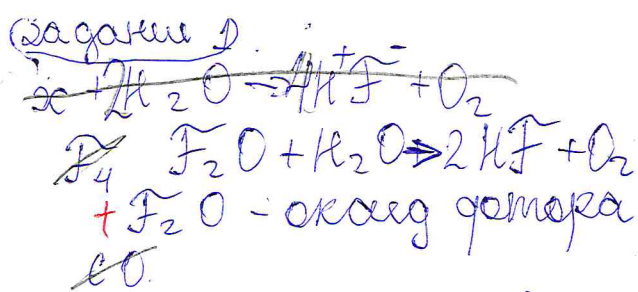 Задание 1.
x + 2H₂O → 4H⁺F⁻ + O₂
F₄ F₂O + H₂O → 2HF + O₂
+ F₂O - оксид фтора
CO